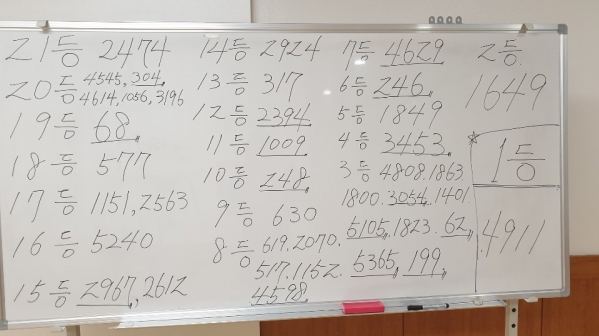 21등 2474
20등 4545, 304,
4614, 1056, 3196
19등 68,
18등 577
17등 1151, 2563
16등 5240
15등 2967, 2612
14등 2924
13등 317
12등 2394
11등 1009
10등 248,
9등 630
8등 619. 2070.
517. 1152.
4598.
7등 4629
6등 246
5등 1849
4등 3453.
3등 4808. 1863
1800. 3054. 1401.
5105, 1823. 62,
5365, 199,
2등.
1649
1등
4911